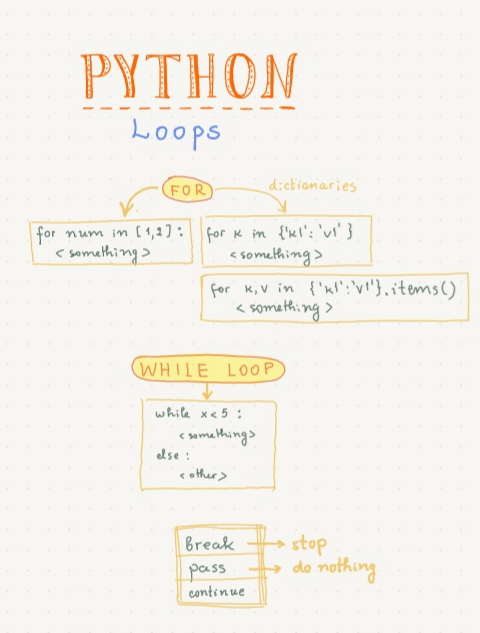 PYTHON
Loops
FOR
dictionaries
for num in [1,2]:
<something>
for k in {'k1': 'v1'}
<something>
for k,v in {'k1':'v1'}.items()
<something>
WHILE LOOP
while x<5 :
<something>
else :
<other>
break → stop
pass → do nothing
continue